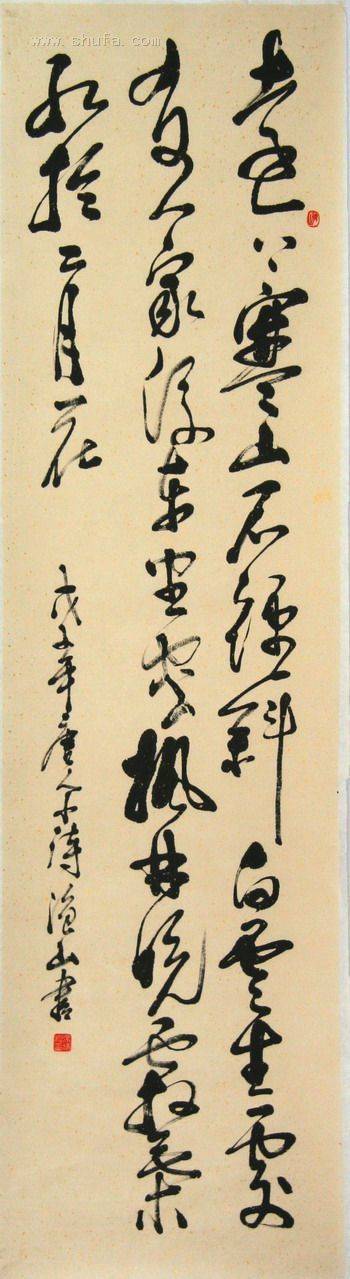 远上寒山石径斜白云生处
有人家停车坐爱枫林晚霜叶
红于二月花
戊子年唐人小诗 山书
www.shufa.com